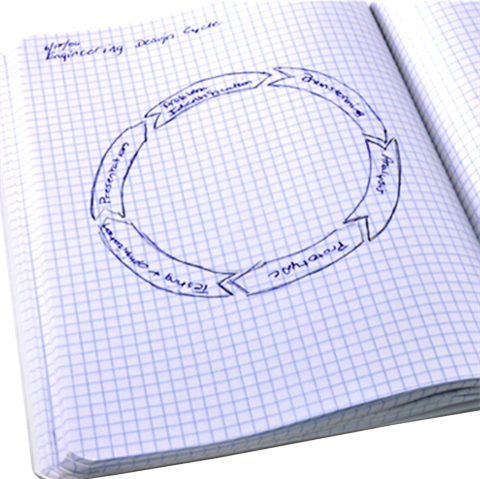 Engineering Design Cycle
Problem
Identification
Brainstorming
Analysis
Prototype
Testing + Optimization
Presentation